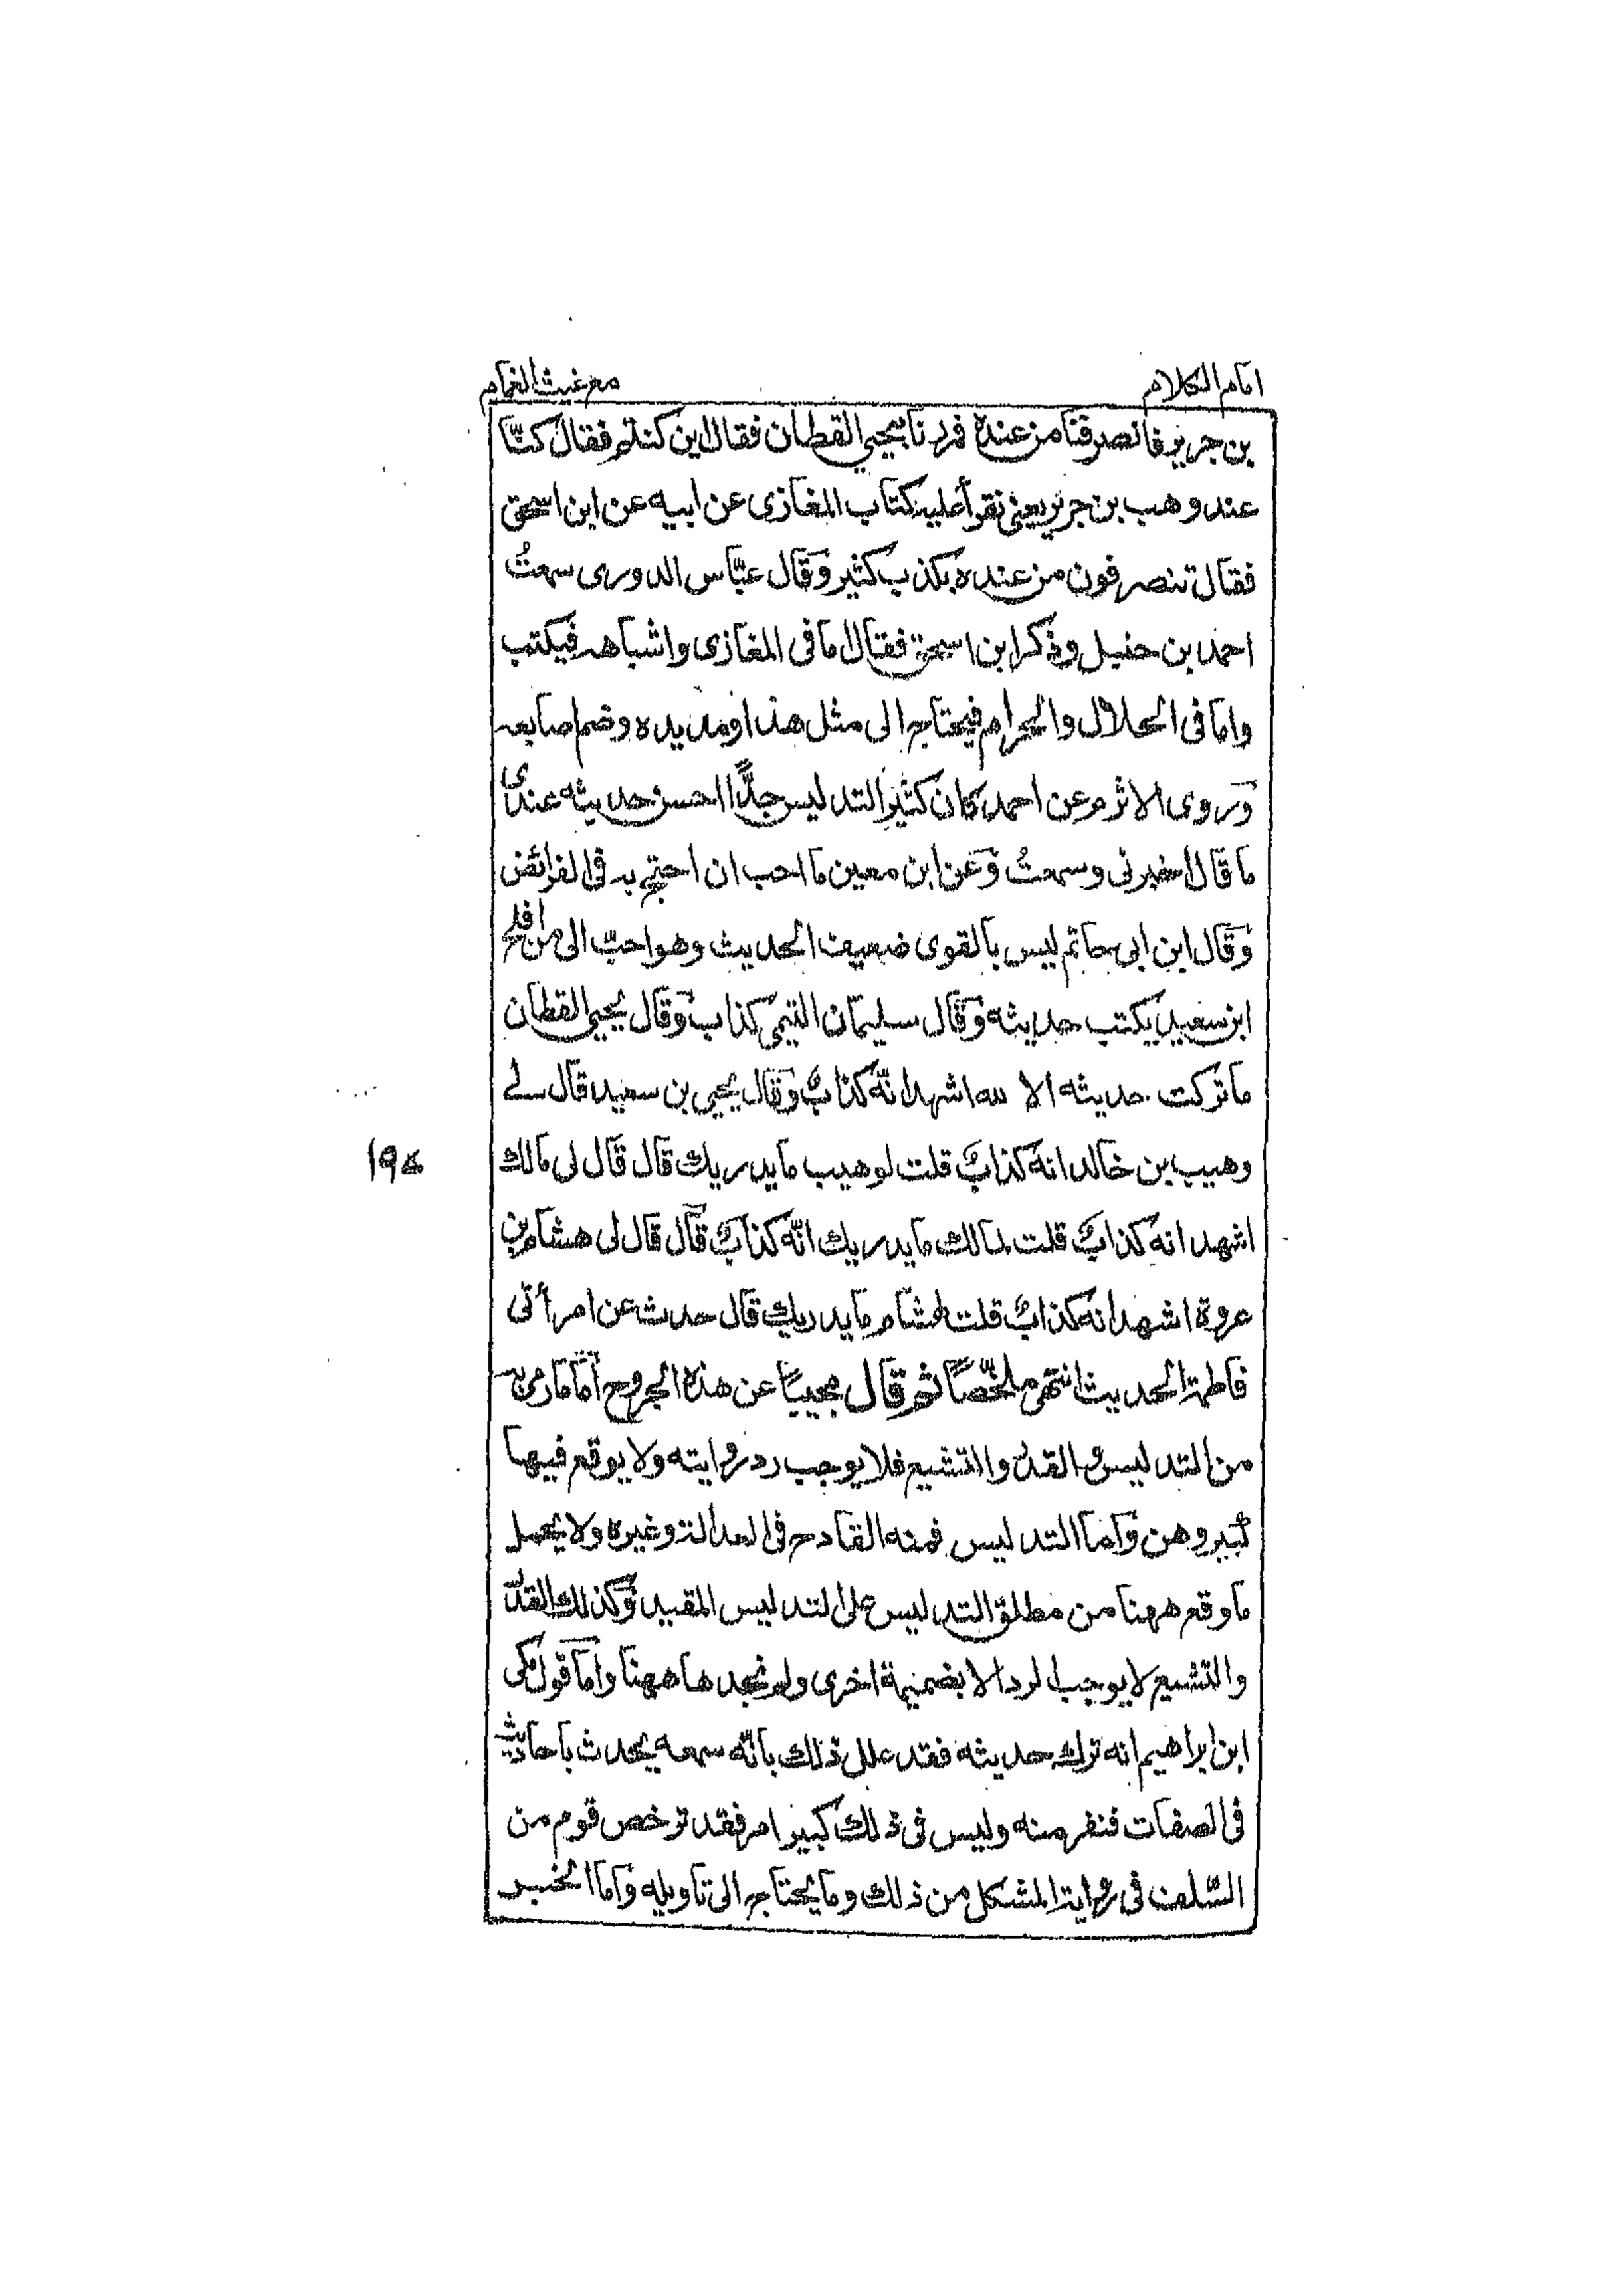 امام الكلام
مع غيث الغمام
بن جرير فانصرفنا من عنده فمررنا بيحيى القطان فقال اين كنتم فقال كنّا
عند وهب بن جرير يعنى نقرأ عليه كتاب المغازى عن ابيه عن ابن اسحق
فقال تنصرفون من عنده بكذب كثير وقال عبّاس الدورى سمعتُ
احمد بن حنبل وذكر ابن اسحق فقال اما فى المغازى واشباهه فيكتب
واما فى الحلال والحرام فيحتاج الى مثل هذا ومد يده وضم اصابعه
وروى الاثرم عن احمد كان كثير التدليس جدًّا احسن حديثه عندى
ما قال اخبرنى وسمعتُ وعن ابن معين ما احب ان احتج به فى الفرائض
وقال ابن ابى حاتم ليس بالقوى ضعيف الحديث وهو احبّ الى من افلح
ابن سعيد يكتب حديثه وقال سليمان التيمى كذاب وقال يحيى القطان
ما تركت حديثه الا لله اشهد انّه كذابٌ وقال يحيى بن سعيد قال لے
وهيب بن خالد انه كذابٌ قلت لوهيب ما يدريك قال قال لى مالك
اشهد انه كذابٌ قلت لمالك ما يدريك انّه كذابٌ قال قال لى هشام بن
عروة اشهد انه كذابٌ قلت لهشام ما يدريك قال حدث عن امرأتى
فاطمة الحديث انتهى ملخّصًا ثم قال مجيبًا عن هذه الجروح أمّا ما رمى به
من التدليس والقدر والتشيع فلا يوجب رد روايته ولا يوقع فيها
كبير وهن وأما التدليس فمنه القادح فى العدالة وغيره ولا يحمل
ما وقع ههنا من مطلق التدليس على التدليس المقيد وكذلك القدر
والتشيع لا يوجب الرد الا بضميمة اخرى ولم نجدها ههنا وأما قول مكى
ابن ابراهيم انه ترك حديثه فقد علل ذلك بانّه سمعه يحدث باحاديث
فى الصفات فنفر منه وليس فى ذلك كبير امر فقد ترخص قوم من
السّلف فى رواية المشكل من ذلك وما يحتاج الى تاويله وأما الخبر